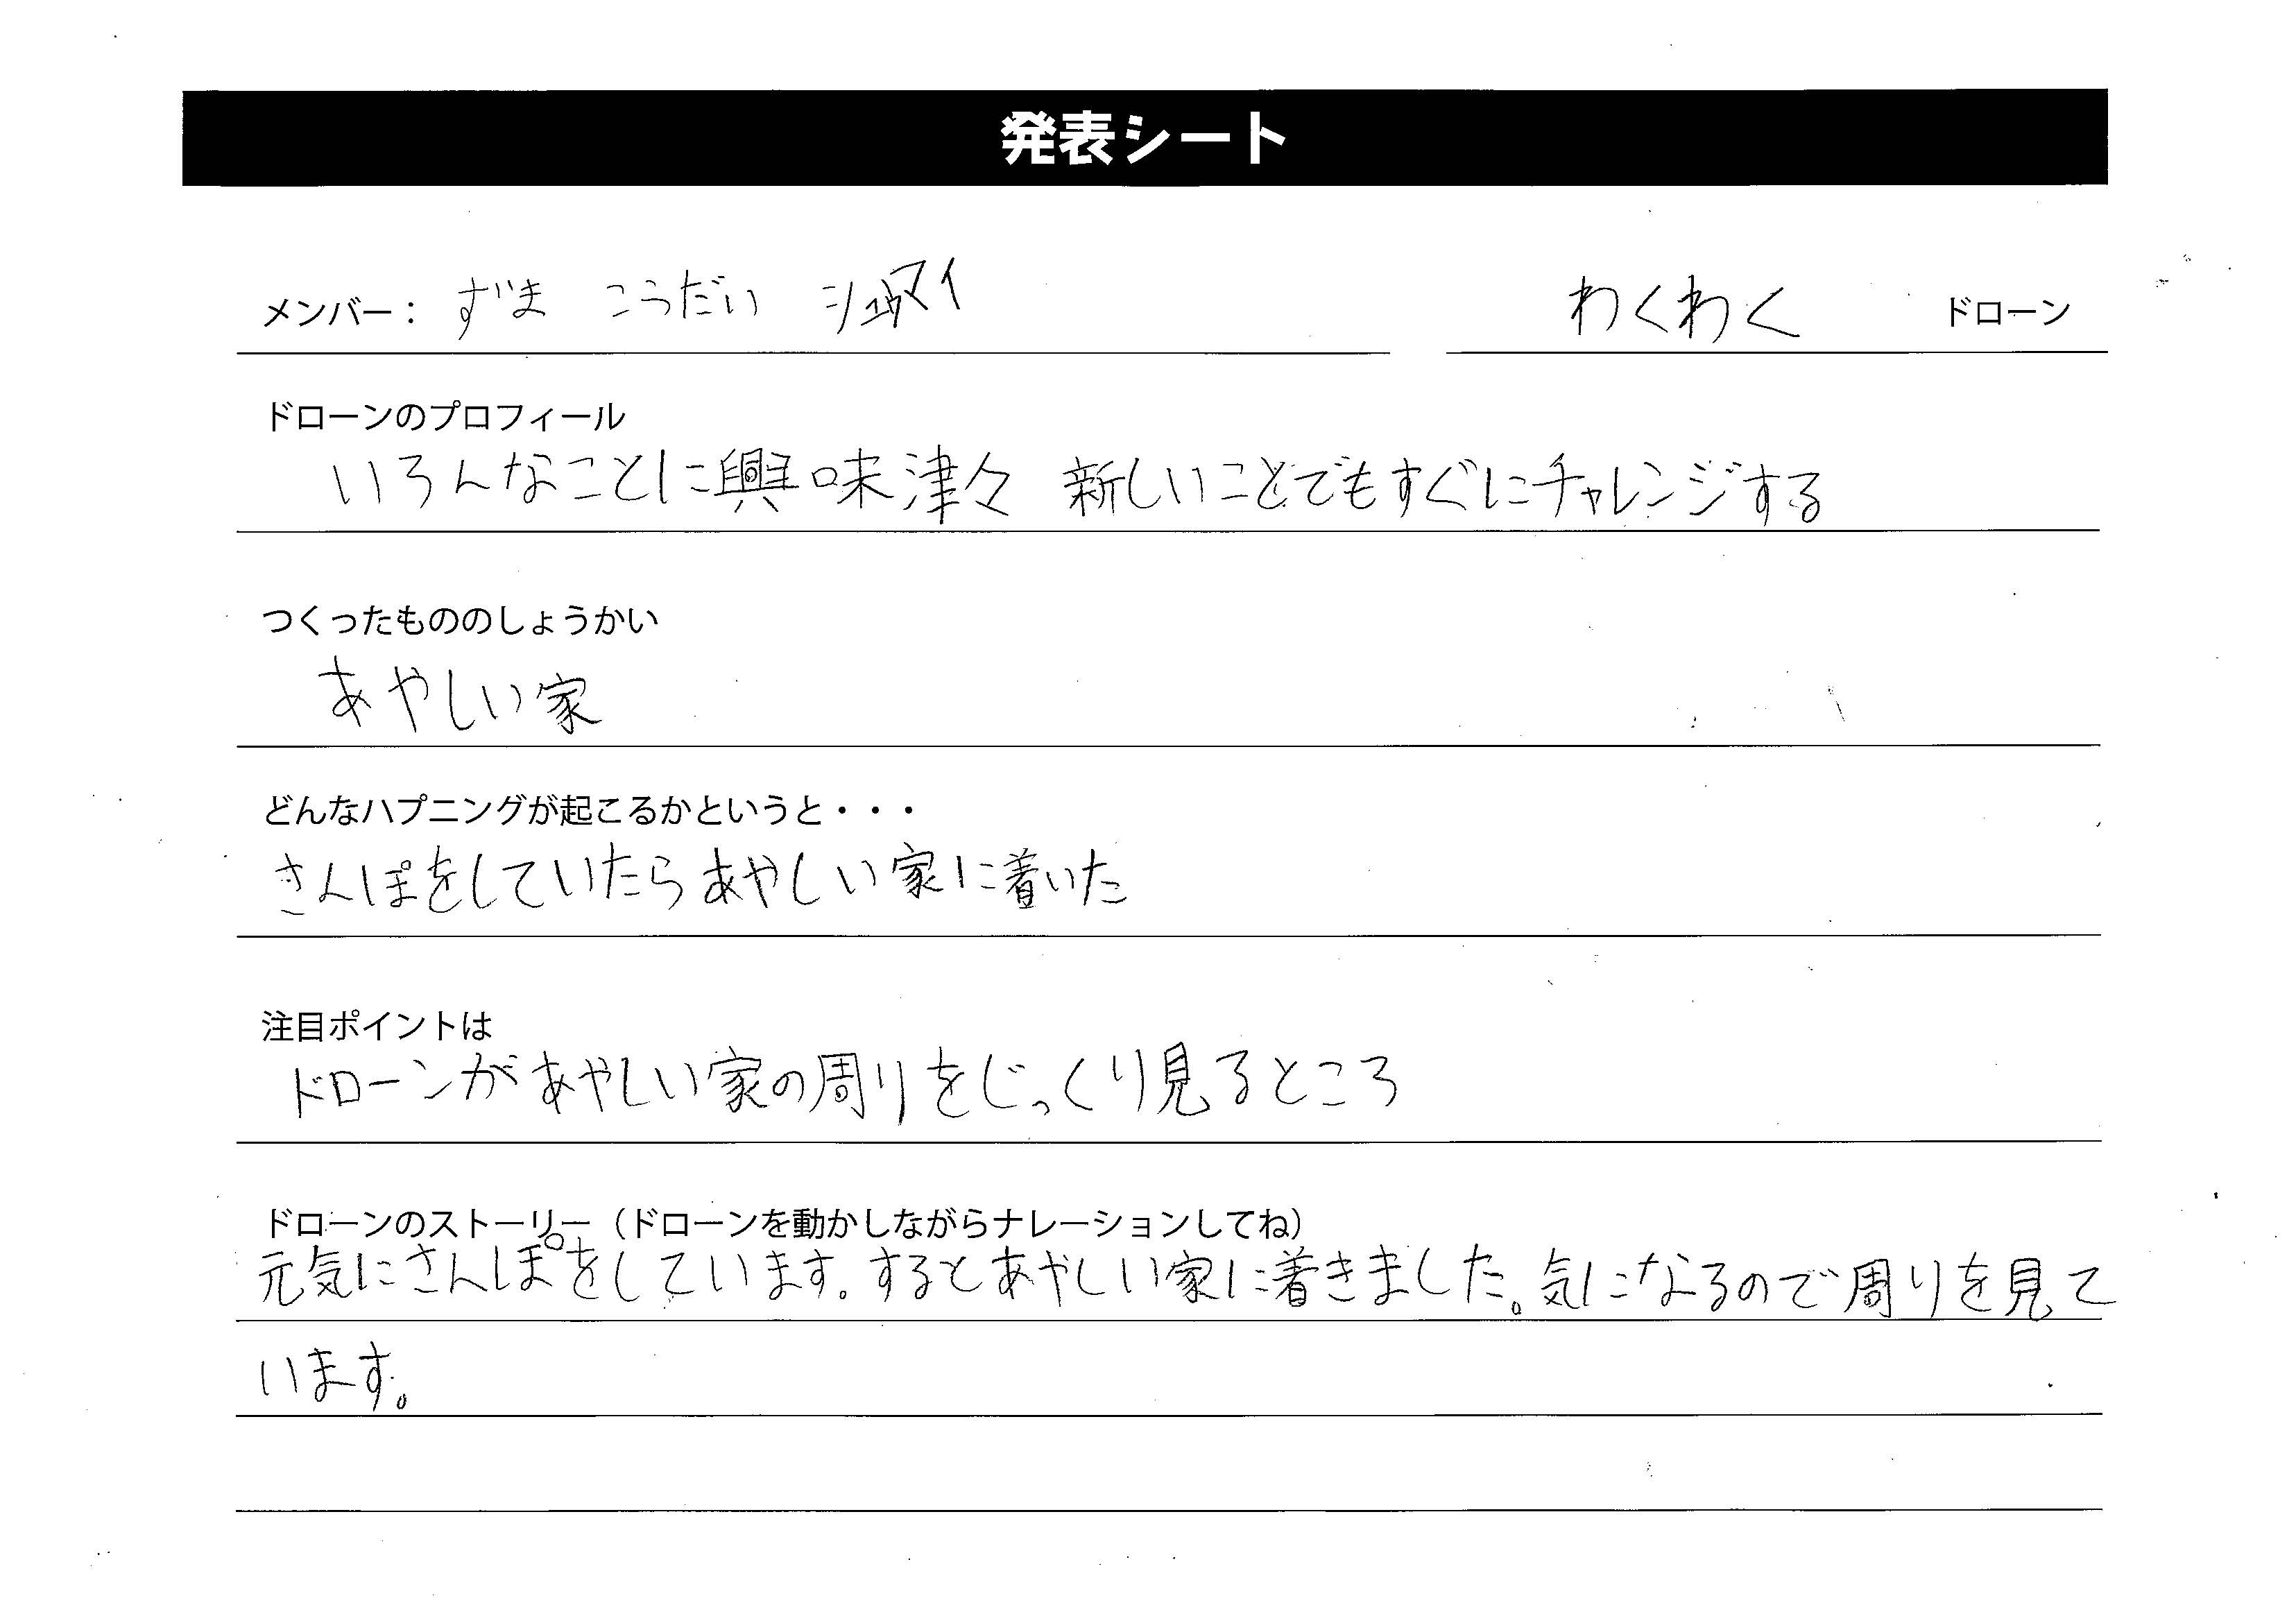 発表シート
メンバー： ずま こうだい わくわく ドローン
ドローンのプロフィール
いろんなことに興味津々 新しいことでもすぐにチャレンジする
つくったもののしょうかい
あやしい家
どんなハプニングが起こるかというと・・・
さんぽをしていたらあやしい家に着いた
注目ポイントは
ドローンがあやしい家の周りをじっくり見るところ
ドローンのストーリー（ドローンを動かしながらナレーションしてね）
元気にさんぽをしています。するとあやしい家に着きました。気になるので周りを見て
います。